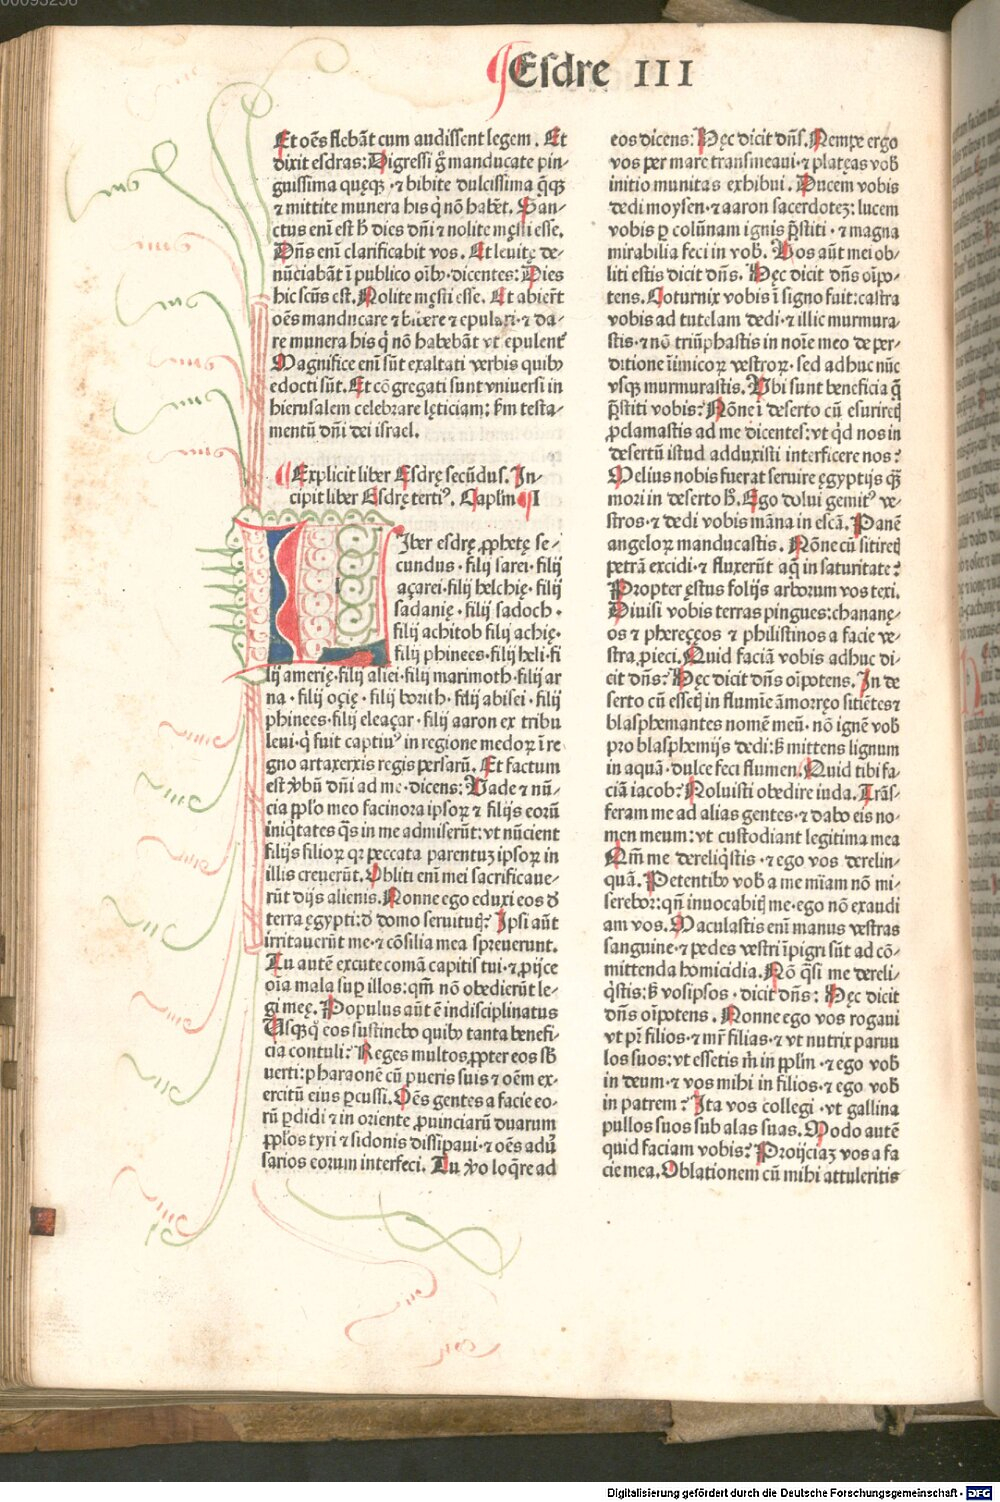 00095256
¶Esdre III
Et oēs flebāt cum audissent legem. Et
dixit esdras: Digressi g̊ manducate pin⸗
guissima quęqꝫ ⁊ bibite dulcissima q̄qꝫ
⁊ mittite munera his q̇ nō habēt. San⸗
ctus enī est h̄ dies dn̄i ⁊ nolite męsti esse.
Dn̄s enī clarificabit vos. Et leuitę de⸗
nūciabāt ī publico oībꝰ dicentes: Dies
hic scūs est. Nolite męsti esse. Et abierūt
oēs manducare ⁊ bibere ⁊ epulari ⁊ da⸗
re munera his q̇ nō habebāt vt epulent᷑
Magnifice enī sūt exaltati verbis quibꝰ
edocti sūt. Et cōgregati sunt vniuersi in
hierusalem celebrare lęticiam: ẜm testa⸗
mentū dn̄i dei israel.
¶ Explicit liber Esdrę secūdus. In⸗
cipit liber Esdrę tertiꝰ. Caplm ¶I
Liber esdrę ꝓphetę se⸗
cundus · filij sarei · filij
açarei · filij helchię · filij
sadanię · filij sadoch ·
filij achitob filij achię·
filij phinees · filij heli · fi
lij amerię · filij asiei · filij marimoth · filij ar
na · filij oçię · filij borith · filij abisei · filij
phinees · filij eleaçar · filij aaron ex tribu
leui · q̇ fuit captiuꝰ in regione medoꝝ ī re
gno artaxerxis regis persarū. Et factum
est v̊bū dn̄i ad me · dicens: Vade ⁊ nū⸗
cia pplo meo facinora ipsoꝝ ⁊ filijs eorū
iniq̇tates q̄s in me admiserūt: vt nūcient
filijs filioꝝ qꝛ peccata parentuꝫ ipsoꝝ in
illis creuerūt. Obliti enī mei sacrificaue⸗
rūt dijs alienis. Nonne ego eduxi eos d̄
terra ęgypti: d̄ domo seruitutꝭ? Ipsi aūt
irritauerūt me · ⁊ cōsilia mea spreuerunt.
Tu autē excute comā capitis tui · ⁊ ꝓijce
oīa mala sup illos: qm̄ nō obedierūt le⸗
gi meę. Populus aūt ē indisciplinatus
Usqꝫq̊ eos sustinebo quibꝰ tanta benefi⸗
cia contuli? Reges multos ꝓpter eos sb̄
uerti: pharaonē cū pueris suis ⁊ oēm ex⸗
ercitū eius ꝑcussi. Oēs gentes a facie eo⸗
rū ꝑdidi ⁊ in oriente ꝓuinciarū duarum
pplos tyri ⁊ sidonis dissipaui · ⁊ oēs adū
sarios eorum interfeci. Tu v̊o loq̄re ad
eos dicens: Hęc dicit dn̄s. Nempe ergo
vos per mare transmeaui · ⁊ plateas vob̄
initio munitas exhibui. Ducem vobis
dedi moysen · ⁊ aaron sacerdoteꝫ: lucem
vobis ꝑ colūnam ignis p̄stiti · ⁊ magna
mirabilia feci in vob̄. Vos aūt mei ob⸗
liti estis dicit dn̄s. Hęc dicit dn̄s oīpo⸗
tens. Coturnix vobis ī signo fuit: castra
vobis ad tutelam dedi · ⁊ illic murmura⸗
stis · ⁊ nō triūphastis in noīe meo de per⸗
ditione īimicoꝝ vestroꝝ · sed adhuc nūc
vsqꝫ murmurastis. Vbi sunt beneficia q̄
p̄stiti vobis? Nōne ī deserto cū esuriretꝭ
ꝓclamastis ad me dicentes: vt qd nos in
desertū istud adduxisti interficere nos?
Melius nobis fuerat seruire ęgyptijs q̄ꝫ
mori in deserto h̄. Ego dolui gemitꝰ ve⸗
stros · ⁊ dedi vobis māna in escā. Panē
angeloꝝ manducastis. Nōne cū sitiretꝭ
petrā excidi · ⁊ fluxerūt aq̄ in saturitate?
Propter ęstus folijs arborum vos texi.
Diuisi vobis terras pingues: chananę⸗
os ⁊ pherecęos ⁊ philistinos a facie ve⸗
stra ꝓieci. Quid faciā vobis adhuc di⸗
cit dn̄s? Hęc dicit dn̄s oīpotens. In de
serto cū essetꝭ in flumīe āmorręo sitiētes ⁊
blasphemantes nomē meū · nō ignē vob̄
pro blasphemijs dedi: ß mittens lignum
in aquā · dulce feci flumen. Quid tibi fa⸗
ciā iacob? Noluisti obedire iuda. Trās⸗
feram me ad alias gentes · ⁊ dabo eis no⸗
men meum: vt custodiant legitima mea
Qm̄ me dereliq̇stis · ⁊ ego vos derelin⸗
quā. Petentibꝰ vob̄ a me mīam nō mi⸗
serebor: qn̄ inuocabitꝭ me · ego nō exaudi
am vos. Maculastis enī manus vestras
sanguine · ⁊ pedes vestri īpigri sūt ad cō⸗
mittenda homicidia. Nō q̄si me dereli⸗
q̇stis: ß vosipsos · dicit dn̄s: Hęc dicit
dn̄s oīpotens. Nonne ego vos rogaui
vt pr̄ filios · ⁊ mr̄ filias · ⁊ vt nutrix paruu
los suos: vt essetis m̄ in pplm · ⁊ ego vob̄
in deum · ⁊ vos mihi in filios · ⁊ ego vob̄
in patrem? Ita vos collegi · vt gallina
pullos suos sub alas suas. Modo autē
quid faciam vobis? Proijciaꝫ vos a fa
cie mea. Oblationem cū mihi attuleritis
Digitalisierung gefördert durch die Deutsche Forschungsgemeinschaft - DFG